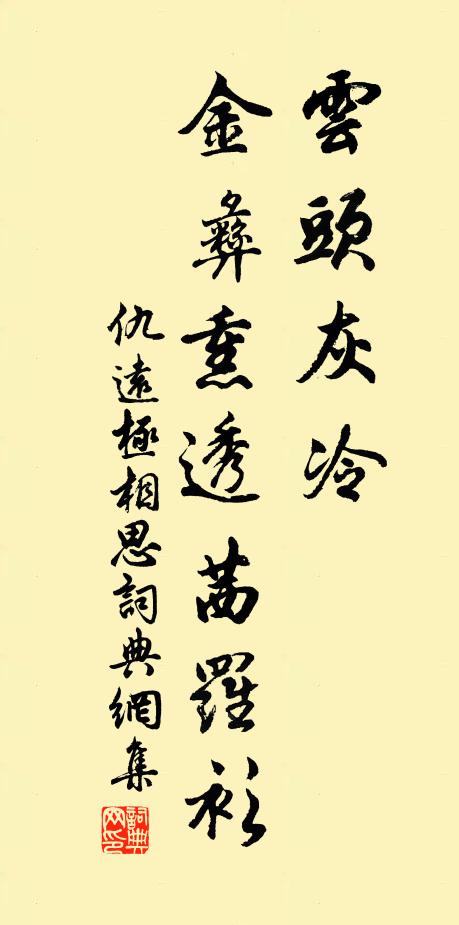 雲頭灰冷
金彝熏透茜羅衫
仇遠極相思詞典網集
詞典网印